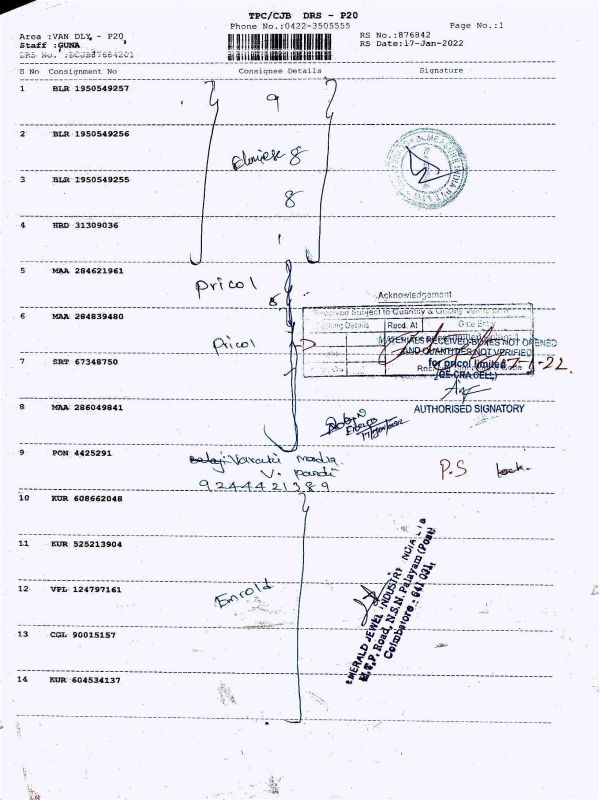 TPC/CJB DRS - P20
Phone No.:0422-3505555
Page No.:1
Area :VAN DLY - P20
Staff :GUNA
RS No.:876842
RS Date:17-Jan-2022
S No Consignment No Consignee Details Signature
1 BLR 1950549257 9
2 BLR 1950549256 8
3 BLR 1950549255 8
4 HRD 31309036 1
5 MAA 284621961 Pricol
Acknowledgement
Received Subject to Quantity & Quality
6 MAA 284839480 Pricol
Recd. At
MATERIALS RECEIVED BOXES NOT OPENED
AND QUANTITIES NOT VERIFIED
7 SRT 67348750
for pricol limited
8 MAA 286049841
AUTHORISED SIGNATORY
17/01/2022
9 PON 4425291 Varahi
V.
9244421389
P.S
10 KUR 608662048
11 KUR 525213904
12 VPL 124797161 Enrold
13 CGL 90015157
14 KUR 604534137
EMERALD JEWEL INDUSTRY INDIA LTD
M.T.P. Road, N.S.N. Palayam (Post)
Coimbatore : 641 031.